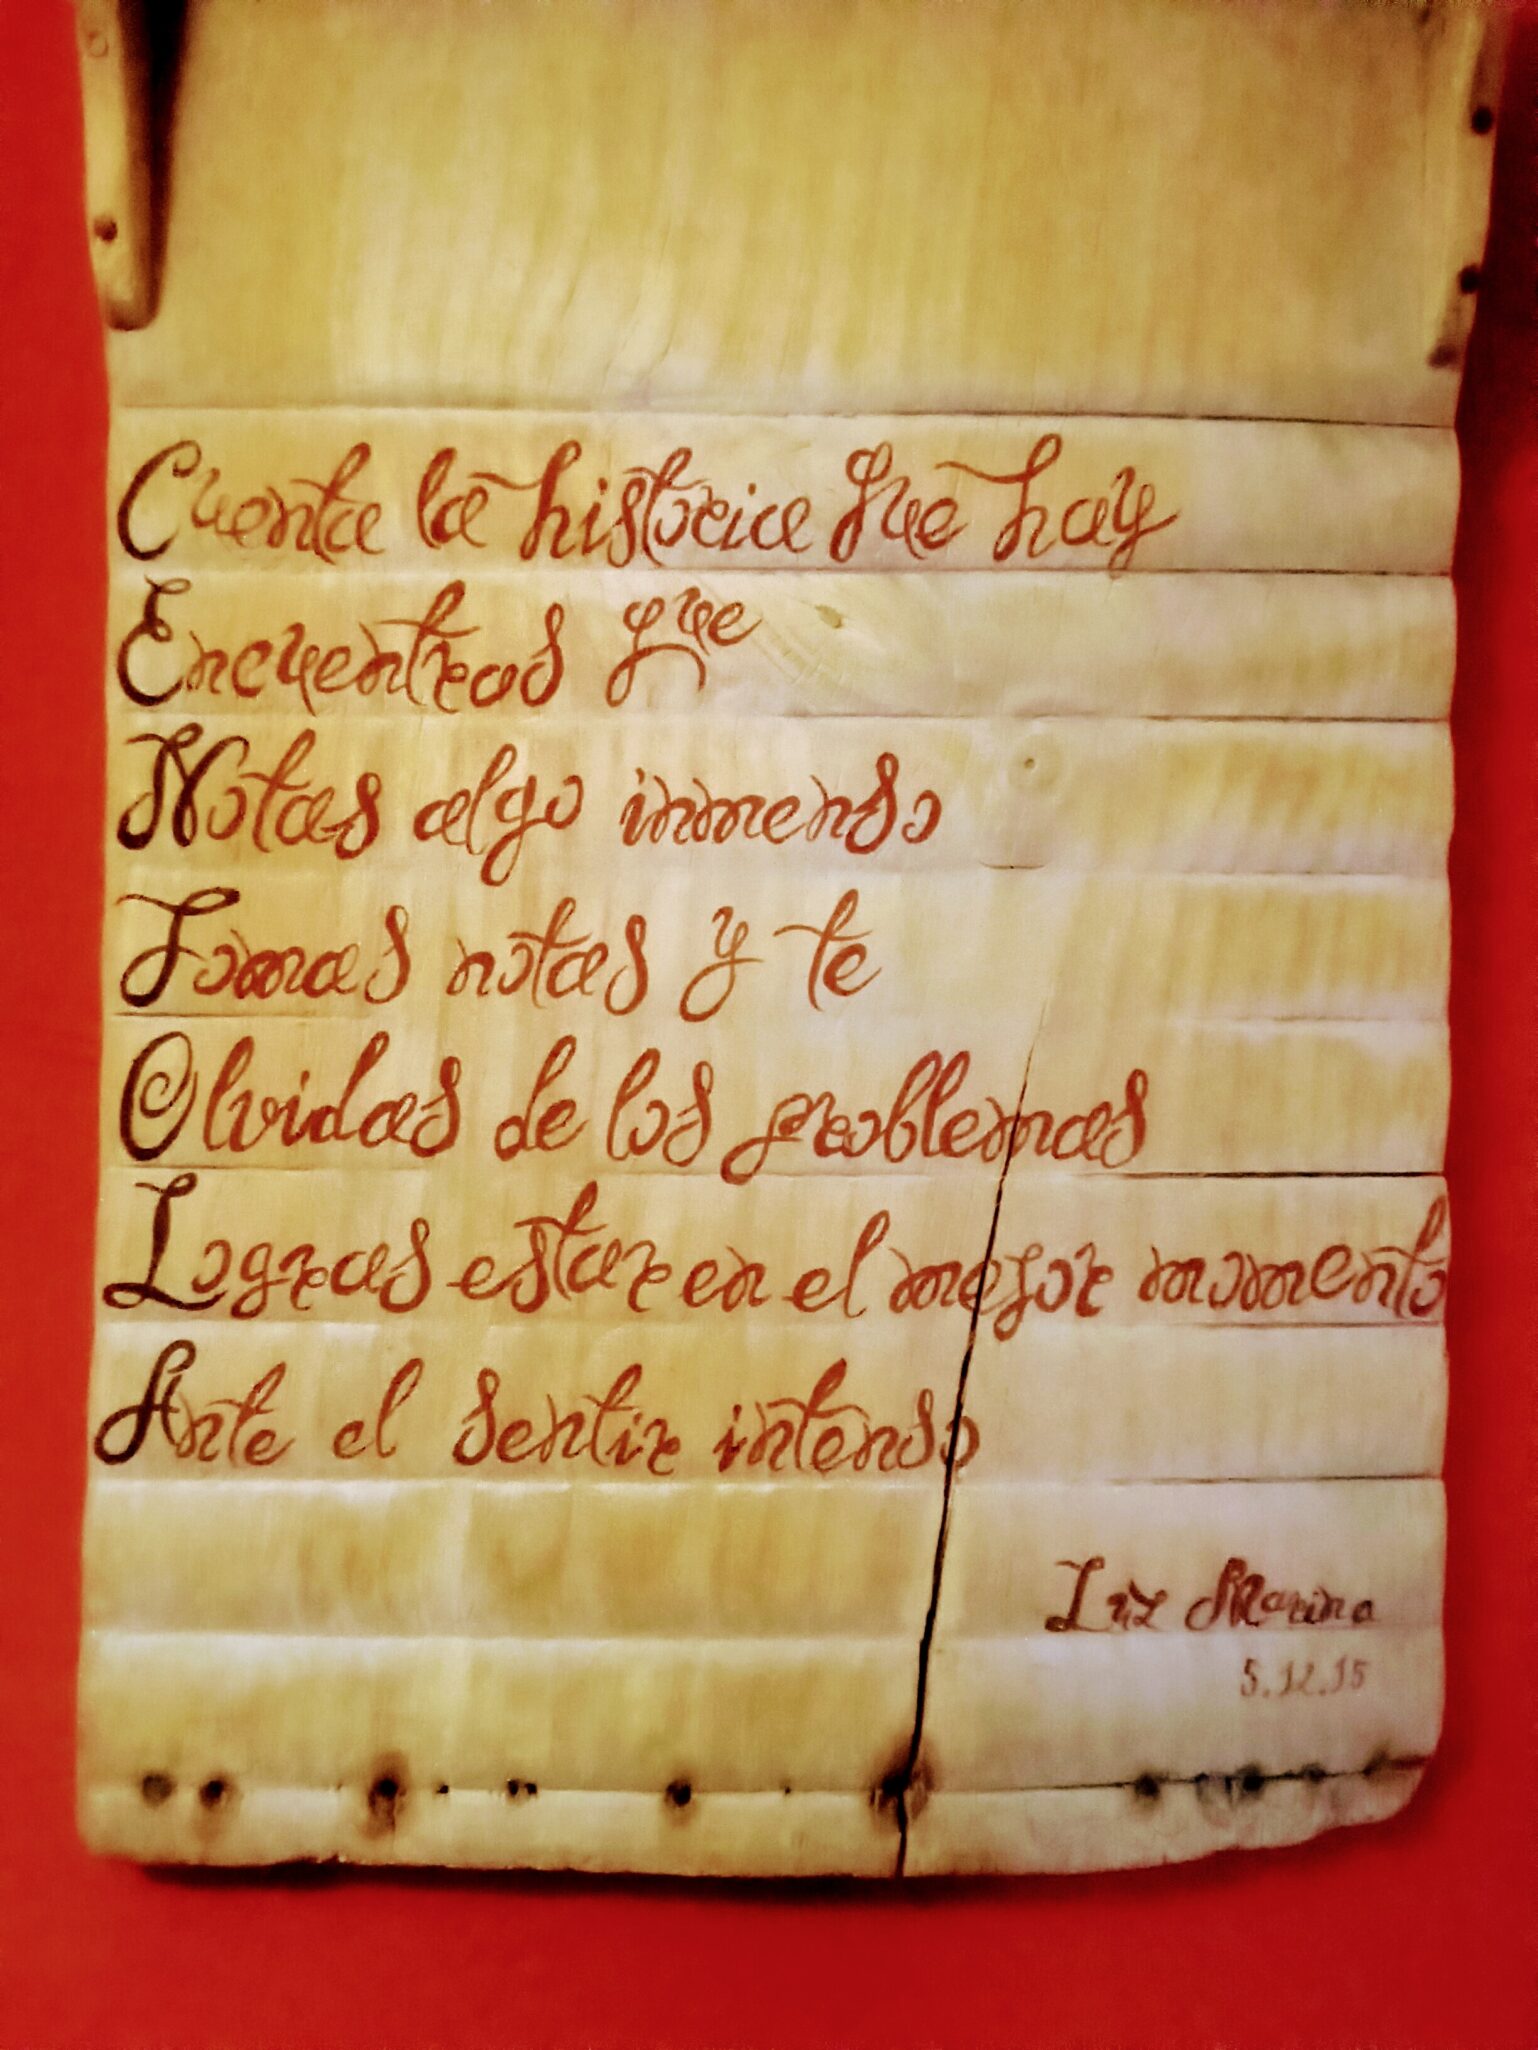 Cuenta la historia que hay
Encuentras que
Notas algo inmenso
Tomas notas y te
Olvidas de los problemas
Logras estar en el mejor momento
Ante el sentir intenso
Luz Marina
5.12.15